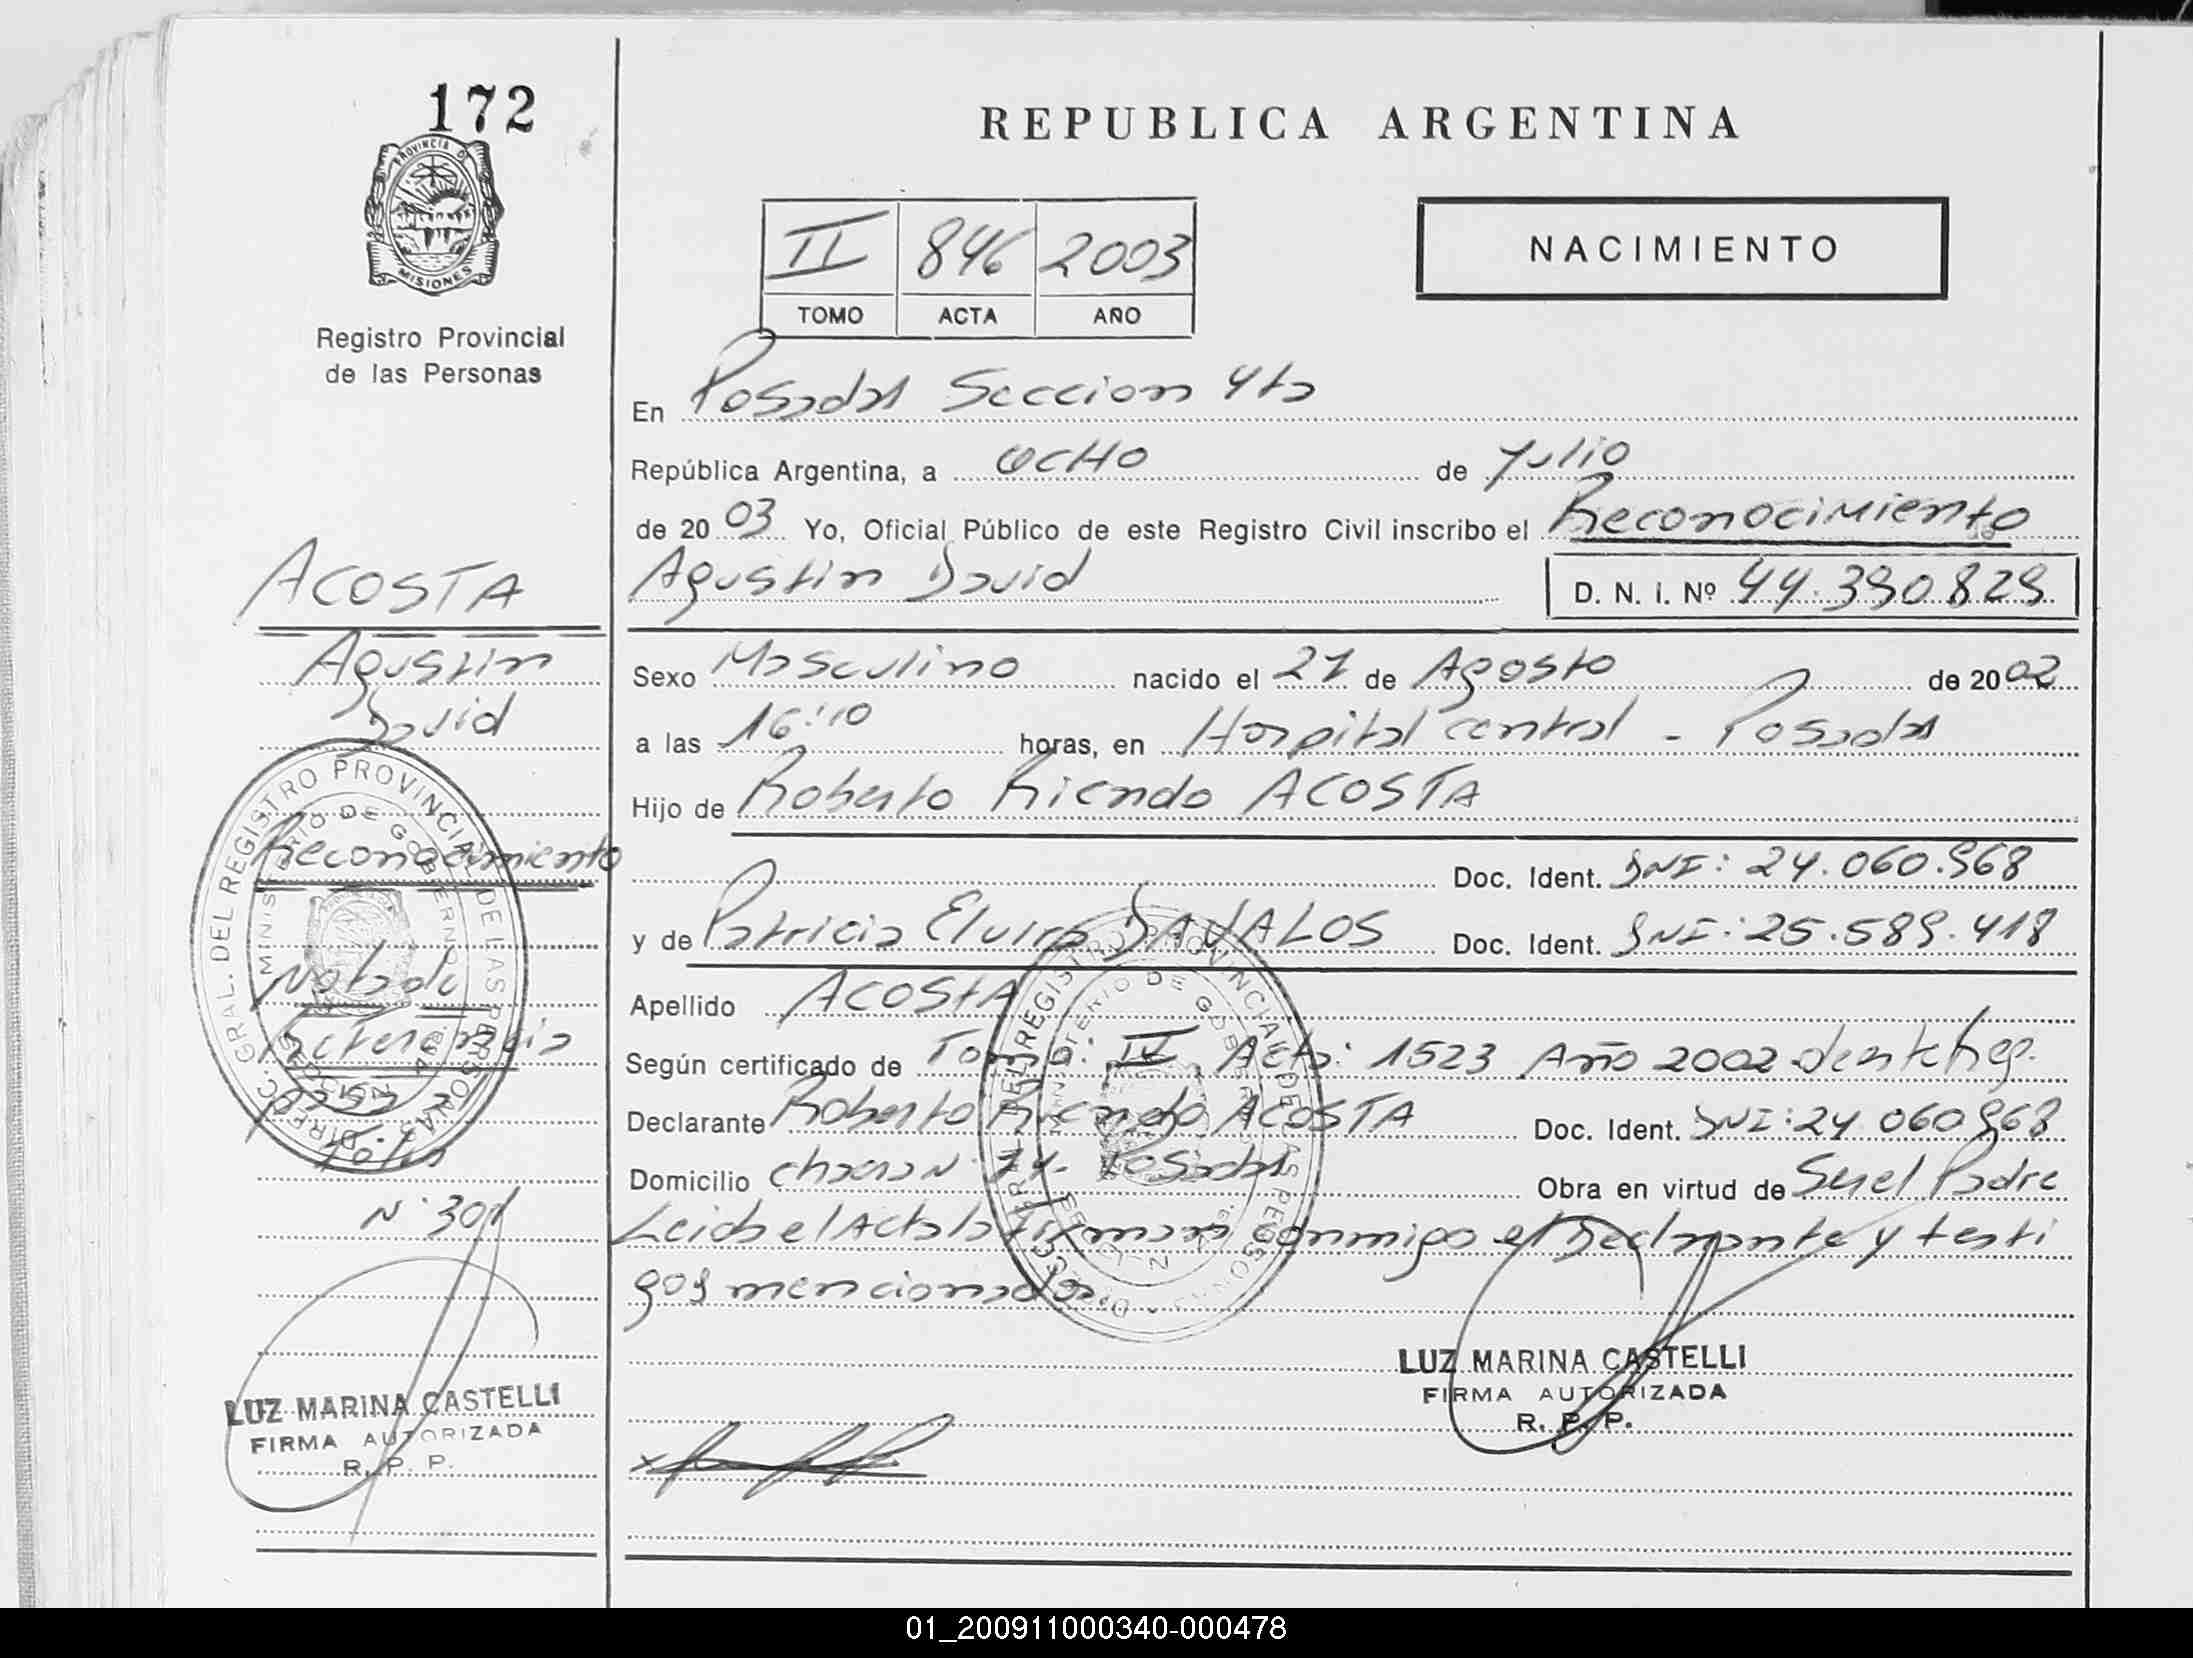 172
PROVINCIA DE
MISIONES
Registro Provincial
de las Personas
ACOSTA
Agustin
David
Reconocimiento
Nota de
Referencia
Folio
Nº 301
LUZ MARINA CASTELLI
FIRMA AUTORIZADA
R. P. P.
REPUBLICA ARGENTINA
II 846 2003
TOMO ACTA AÑO
NACIMIENTO
En Posadas Seccion 4ta
República Argentina, a OCHO de Julio
de 2003 Yo, Oficial Público de este Registro Civil inscribo el Reconocimiento de
Agustin David D. N. I. Nº 44.390.829
Sexo Masculino nacido el 27 de Agosto de 2002
a las 16:10 horas, en Hospital central - Posadas
Hijo de Roberto Ricardo ACOSTA
Doc. Ident. DNI: 24.060.968
y de Patricia Elvira DAVALOS Doc. Ident. DNI: 25.589.418
Apellido ACOSTA
Según certificado de Tomo: IV Acta: 1523 Año 2002 de este Reg.
Declarante Roberto Ricardo ACOSTA Doc. Ident. DNI: 24 060 968
Domicilio chacra N° 74 - Posadas Obra en virtud de Ser el Padre
Leida el Acta la firman conmigo el Declarante y testi
gos mencionados.
LUZ MARINA CASTELLI
FIRMA AUTORIZADA
R. P. P.
DIRECC. GRAL. DEL REGISTRO PROVINCIAL DE LAS PERSONAS
MINISTERIO DE GOBIERNO
MISIONES
01_200911000340-000478